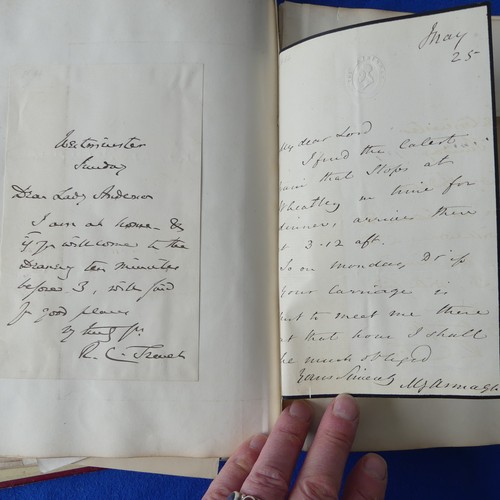 Westminster
Sunday
Dear Lady Anderson
I am at home - &
if yr will come to the
Deanery ten minutes
before 3, will find
good places
R. C. Trench
May
25
My dear Lord
I find the Celestial
train that stops at
Wheatley in time for
dinner, arrives there
at 3.12 aft.
So on Monday, D. v. if
your carriage is
sent to meet me there
at that hour I shall
be much obliged
Yours Sincerely M G Armagh